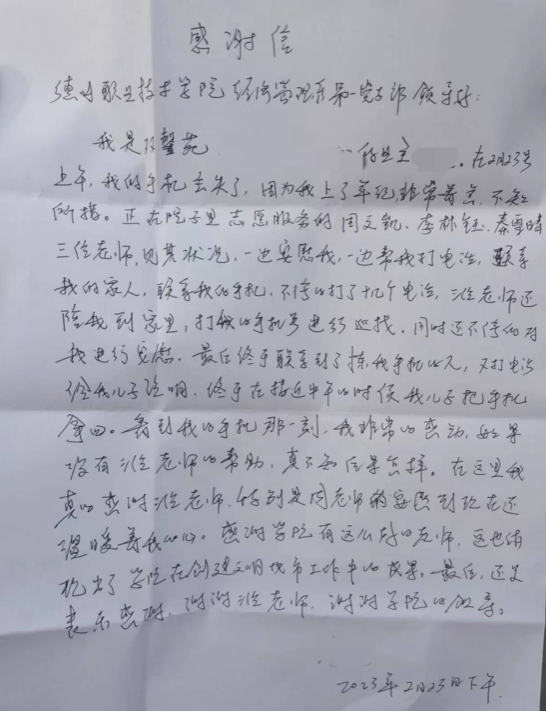 感谢信
德州职业技术学院经济管理系第一党支部领导好:
我是 馨苑 住业主 在2月23号
上午,我的手机丢失了,因为我上了年纪非常着急,不知
所措。正在院子里志愿服务的周文凯、李林钰、秦雪晴
三位老师,见其状况,一边安慰我,一边帮我打电话,联系
我的家人,联系我的手机,不停的打了十几个电话,三位老师还
陪我到家里,打我的手机号进行巡找,同时还不停的对
我进行安慰。最后终于联系到了捡我手机的人,又打电话
给我儿子说明,终于在接近中午的时侯我儿子把手机
拿回。看到我的手机那一刻,我非常的感动,如果
没有三位老师的帮助,真不知后果怎样。在这里我
真的感谢三位老师,特别是周老师的安慰到现在还
温暖着我的心。感谢学院有这么好的老师,这也体
现出了学院在创建文明城市工作中的成果。最后,还是
表示感谢,谢谢三位老师,谢谢学院的领导。
2023年2月23日下午